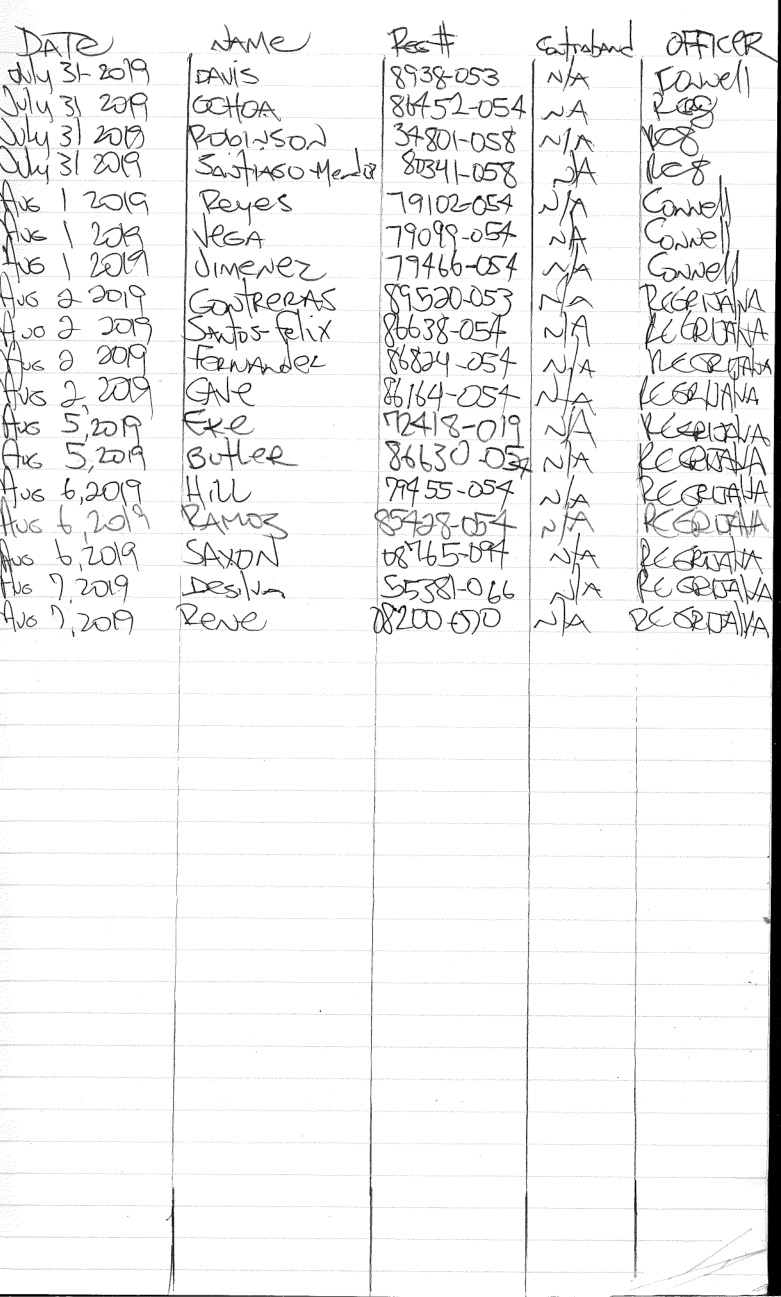 DATE NAME REG# Contraband OFFICER
July 31-2019 DAVIS 8938-053 N/A Connell
July 31 2019 OCHOA 86452-054 NA
July 31 2019 ROBINSON 34801-058 N/A
July 31 2019 SANTIAGO-Mendez 80341-058 NA
AUG 1 2019 Reyes 79102-054 N/A Connell
AUG 1 2019 VEGA 79099-054 NA Connell
AUG 1 2019 JIMENEZ 79466-054 N/A Connell
AUG 2 2019 CONTRERAS 89520-053 N/A REGRIJALVA
AUG 2 2019 SANTOS-felix 86638-054 N/A REGRIJALVA
AUG 2 2019 FERNANDEZ 86824-054 N/A REGRIJALVA
AUG 2, 2019 86164-054 N/A REGRIJALVA
AUG 5,2019 EKE 72418-019 N/A REGRIJALVA
AUG 5,2019 BUTLER 86630-054 N/A REGRIJALVA
AUG 6,2019 HILL 79455-054 N/A REGRIJALVA
AUG 6,2019 RAMOS 85428-054 N/A REGRIJALVA
AUG 6,2019 SAXON 08765-094 N/A REGRIJALVA
AUG 7,2019 Desilva 55381-066 N/A REGRIJALVA
AUG 7,2019 RENE 08200-070 N/A REGRIJALVA